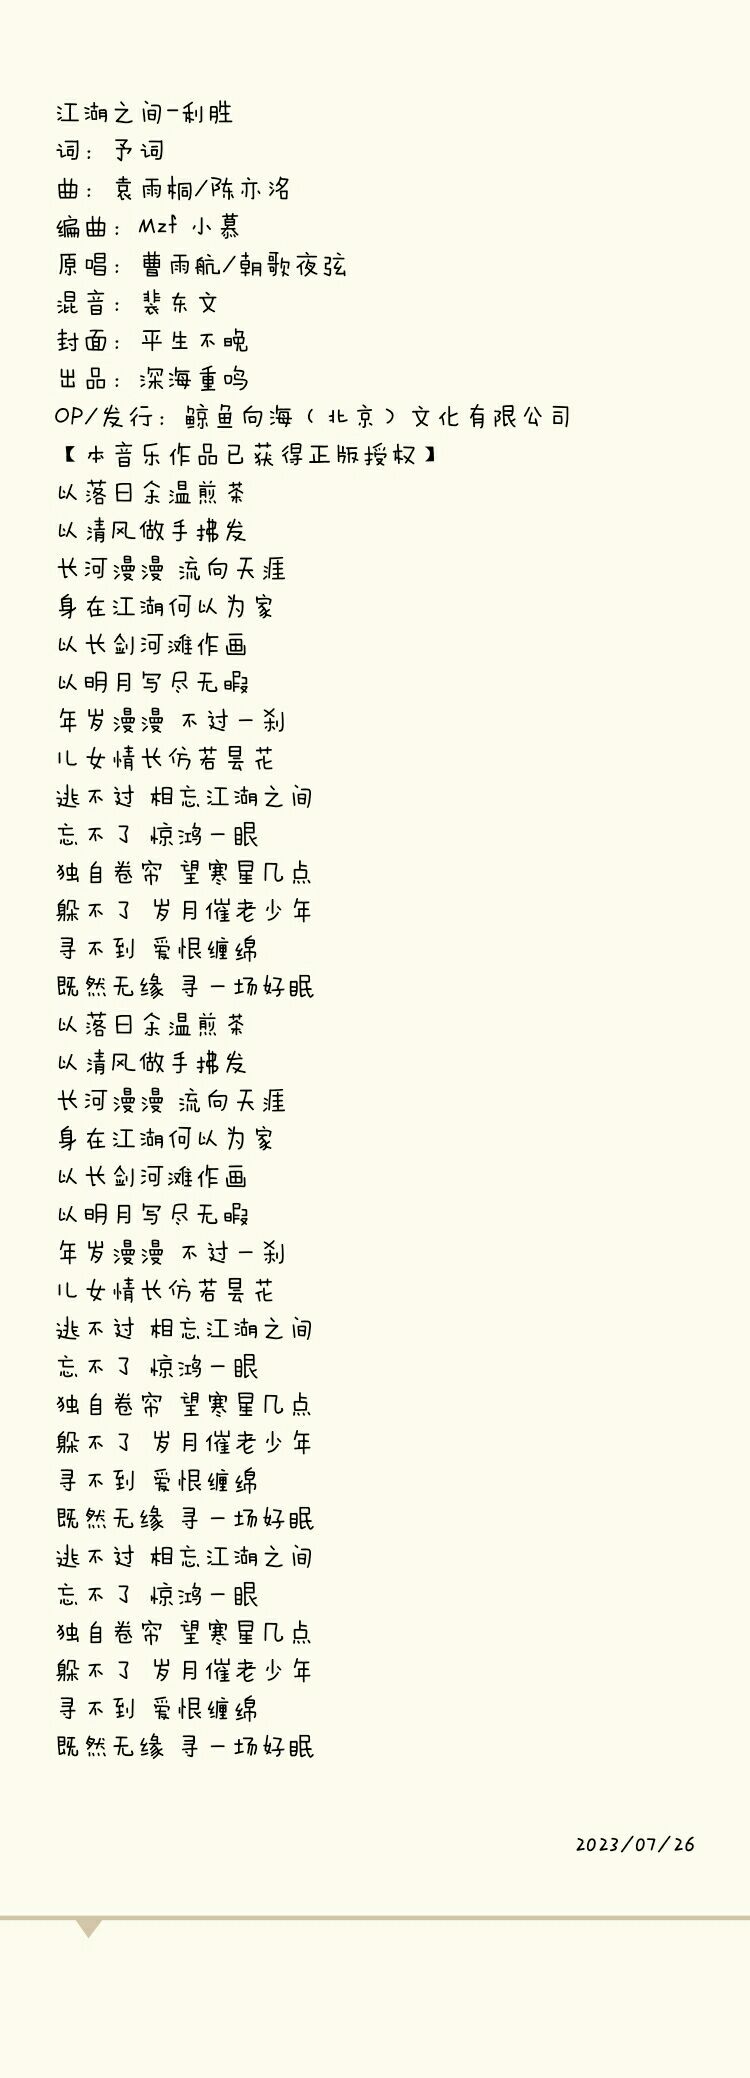 江湖之间-利胜
词：予词
曲：袁雨桐/陈亦洺
编曲：Mzf 小慕
原唱：曹雨航/朝歌夜弦
混音：裴东文
封面：平生不晚
出品：深海重鸣
OP/发行：鲸鱼向海（北京）文化有限公司
【本音乐作品已获得正版授权】
以落日余温煎茶
以清风做手拂发
长河漫漫 流向天涯
身在江湖何以为家
以长剑河滩作画
以明月写尽无暇
年岁漫漫 不过一刹
儿女情长仿若昙花
逃不过 相忘江湖之间
忘不了 惊鸿一眼
独自卷帘 望寒星几点
躲不了 岁月催老少年
寻不到 爱恨缠绵
既然无缘 寻一场好眠
以落日余温煎茶
以清风做手拂发
长河漫漫 流向天涯
身在江湖何以为家
以长剑河滩作画
以明月写尽无暇
年岁漫漫 不过一刹
儿女情长仿若昙花
逃不过 相忘江湖之间
忘不了 惊鸿一眼
独自卷帘 望寒星几点
躲不了 岁月催老少年
寻不到 爱恨缠绵
既然无缘 寻一场好眠
逃不过 相忘江湖之间
忘不了 惊鸿一眼
独自卷帘 望寒星几点
躲不了 岁月催老少年
寻不到 爱恨缠绵
既然无缘 寻一场好眠
2023/07/26